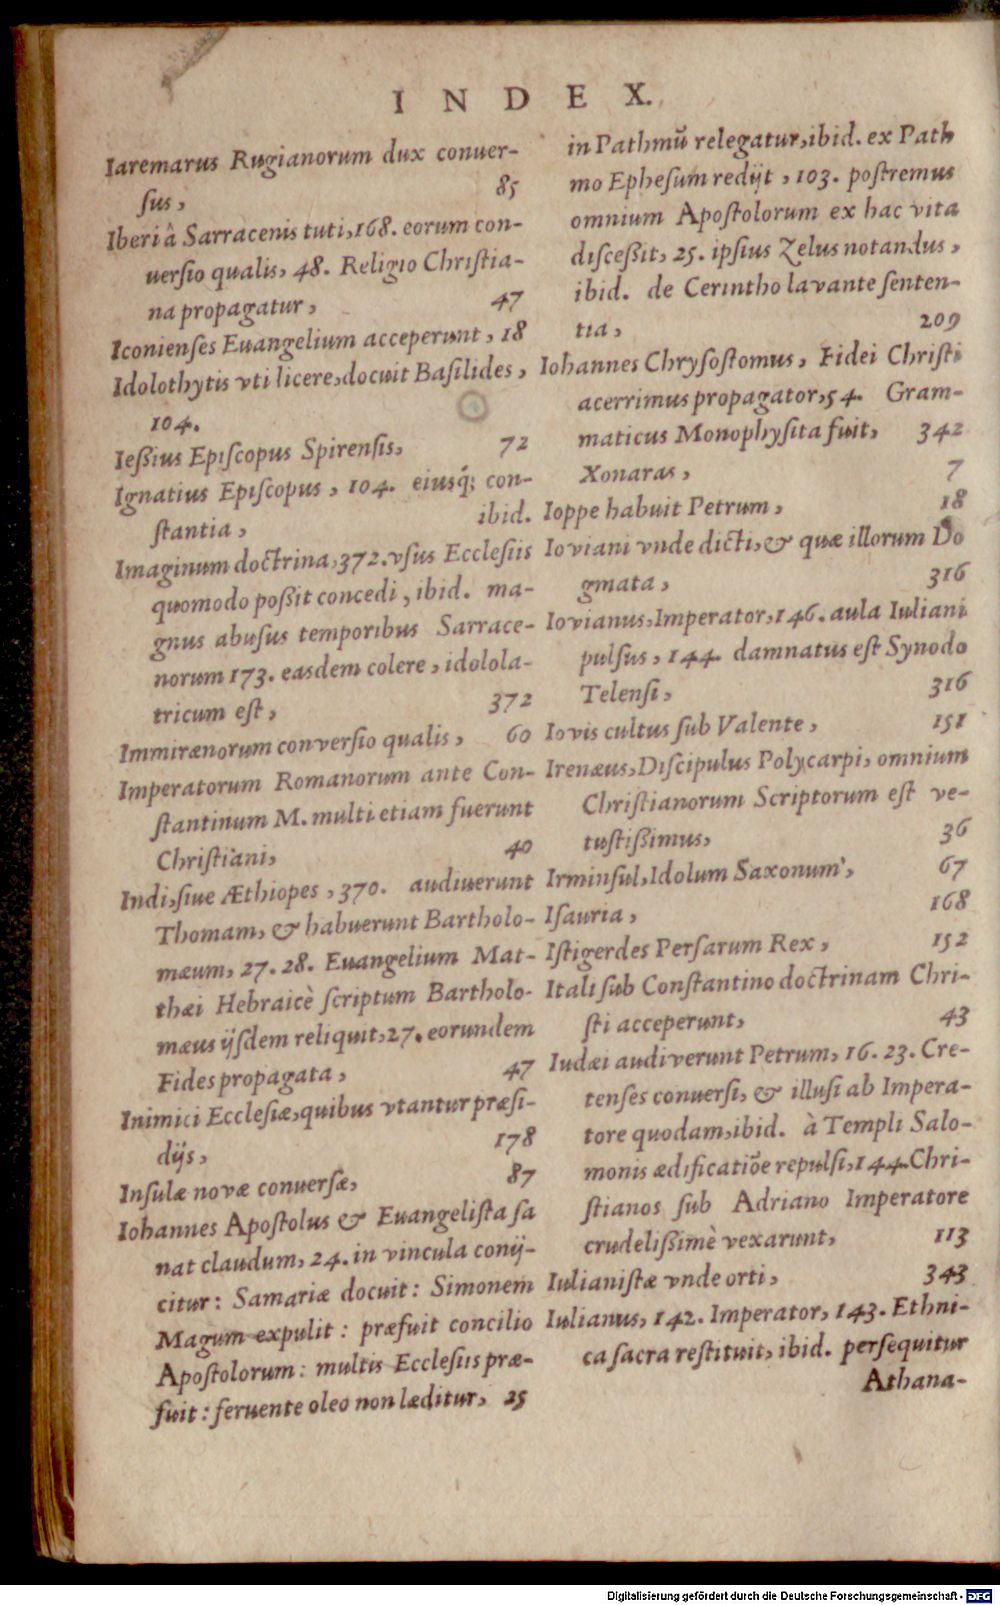 INDEX.
Iaremarus Rugianorum dux conuer-
ſus, 85
Iberi â Sarracenis tuti, 168. eorum con-
uerſio qualis, 48. Religio Chriſtia-
na propagatur, 47
Iconienſes Euangelium acceperunt, 18
Idolothytis vti licere, docuit Baſilides,
104.
Ießius Epiſcopus Spirenſis, 72
Ignatius Epiſcopus, 104. eiusq́; con-
ſtantia, ibid.
Imaginum doctrina, 372. vſus Eccleſiis
quomodo poßit concedi, ibid. ma-
gnus abuſus temporibus Sarrace-
norum 173. easdem colere, idolola-
tricum eſt, 372
Immirænorum converſio qualis, 60
Imperatorum Romanorum ante Con-
ſtantinum M. multi etiam fuerunt
Chriſtiani, 40
Indi, ſiue Æthiopes, 370. audiuerunt
Thomam, & habuerunt Bartholo-
mæum, 27. 28. Euangelium Mat-
thæi Hebraicè ſcriptum Bartholo-
mæus ijſdem reliquit, 27. eorundem
Fides propagata, 47
Inimici Eccleſiæ, quibus vtantur præſi-
dijs, 178
Inſulæ novæ conuerſæ, 87
Iohannes Apoſtolus & Euangeliſta ſa
nat claudum, 24. in vincula conij-
citur: Samariæ docuit: Simonem
Magum expulit: præfuit concilio
Apoſtolorum: multis Eccleſiis præ-
fuit: feruente oleo non læditur, 25
in Pathmũ relegatur, ibid. ex Path
mo Epheſum redijt, 103. poſtremus
omnium Apoſtolorum ex hac vita
diſceßit, 25. ipſius Zelus notandus,
ibid. de Cerintho lavante ſenten-
tia, 209
Iohannes Chryſoſtomus, Fidei Chriſti
acerrimus propagator, 54. Gram-
maticus Monophyſita fuit, 342
Xonaras, 7
Ioppe habuit Petrum, 18
Ioviani vnde dicti, & quæ illorum Do
gmata, 316
Iovianus, Imperator, 146. aula Iuliani
pulſus, 144. damnatus eſt Synodo
Telenſi, 316
Iovis cultus ſub Valente, 151
Irenæus, Diſcipulus Polycarpi, omnium
Chriſtianorum Scriptorum eſt ve-
tuſtißimus, 36
Irminſul, Idolum Saxonum, 67
Iſauria, 168
Iſtigerdes Perſarum Rex, 152
Itali ſub Conſtantino doctrinam Chri-
ſti acceperunt, 43
Iudæi audiverunt Petrum, 16. 23. Cre-
tenſes conuerſi, & illuſi ab Impera-
tore quodam, ibid. à Templi Salo-
monis ædificatiõe repulſi, 144. Chri-
ſtianos ſub Adriano Imperatore
crudelißimè vexarunt, 113
Iulianiſtæ vnde orti, 343
Iulianus, 142. Imperator, 143. Ethni-
ca ſacra reſtituit, ibid. perſequitur
Athana-
Digitalisierung gefördert durch die Deutsche Forschungsgemeinschaft - DFG